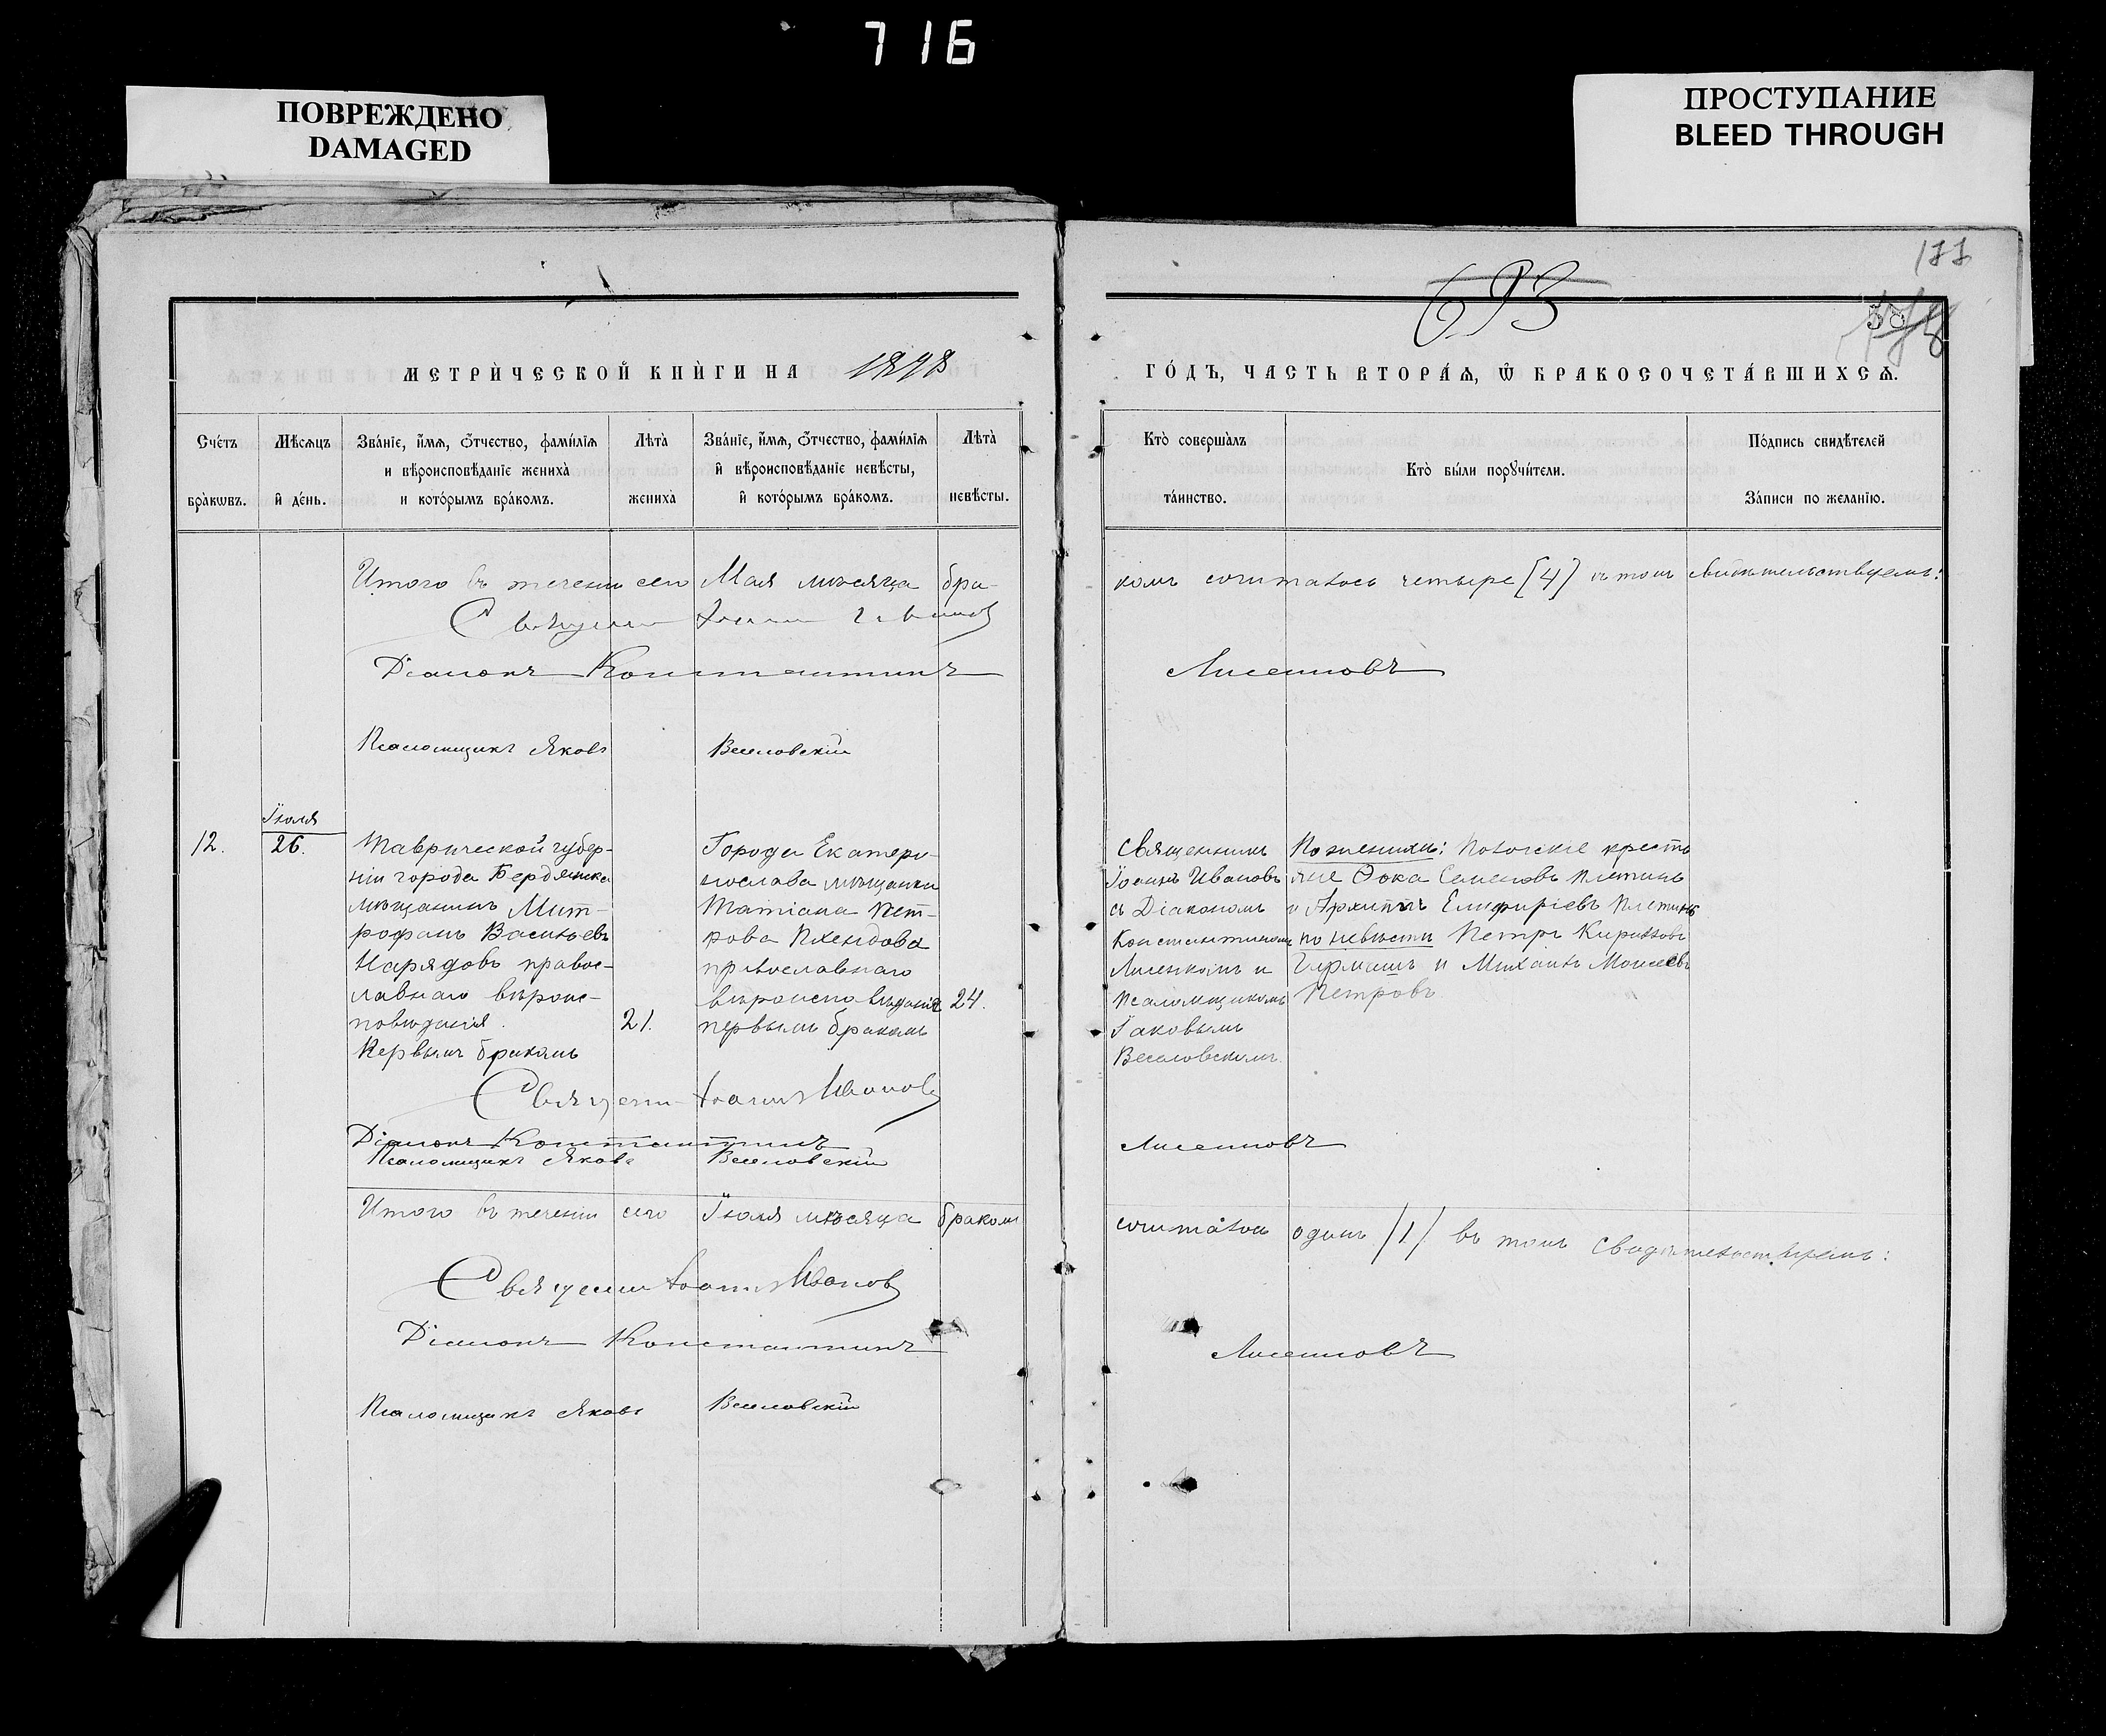 716
ПОВРЕЖДЕНО
DAMAGED
ПРОСТУПАНИЕ
BLEED THROUGH
177
693
МЕТРИ́ЧЕСКОЙ КНИ́ГИ НА 1898
ГО́ДЪ, ЧАСТЬ ВТОРА́Ѧ, Ѿ БРАКОСОЧЕТА́ВШИХСѦ.
Сче́тъ бра́кѡвъ.
Мѣ́сѧцъ и҆ де́нь.
Зва́нїе, и҆́мѧ, ѻ҆́тчество, фами́лїѧ
и вѣроисповѣ́данїе жениха̀
и кото́рымъ бра́комъ.
Лѣта̀ жениха
Зва́нїе, и҆́мѧ, ѻ҆́тчество, фами́лїѧ
и҆ вѣроисповѣ́данїе невѣ́сты,
и҆ кото́рымъ бра́комъ.
Лѣта̀ невѣ́сты.
Кто̀ соверша̀лъ та́инство.
Кто̀ бы́ли порꙋчи́тели.
По́дпись свидѣ́телей
За́писи по жела́нїю.
Итого въ теченіи сего Мая мѣсяца бра-
комъ сочиталось четыре [4] въ томъ свидѣтельствуемъ:
Священ Іоаннъ Иванов
Діаконъ Константинъ Лисенковъ
Псаломщикъ Яковъ Веселовскій
Іюля
12.
26.
Таврической губер-
ніи города Бердянска
мѣщанинъ Мит-
рофанъ Васильевъ
Нарядовъ правос-
лавнаго вѣроис-
повѣданія.
Первымъ бракомъ
21.
Города Екатери-
нослава мѣщанка
Татіана Пет-
рова
православнаго
вѣроисповѣданія
первымъ бракомъ
24.
Священникъ
Іоаннъ Ивановъ
съ Діакономъ
Константиномъ
Лисенкомъ и
Псаломщикомъ
Іаковымъ
Веселовскимъ.
По женихѣ: крестья
яне Фока Семеновъ Плетинь
и Архипъ Елифиріевъ
по невѣсти Петръ Кириловъ
и Михаилъ Моисеевъ
Петровъ
Священ Іоаннъ Иванов
Діаконъ Константинъ Лисенковъ
Псаломщикъ Яковъ Веселовскій
Итого въ теченіи сего Іюля мѣсяца бракомъ
сочитался одинъ /1/ въ томъ свидѣтельствуемъ:
Священ Іоаннъ Иванов
Діаконъ Константинъ Лисенковъ
Псаломщикъ Яковъ Веселовскій